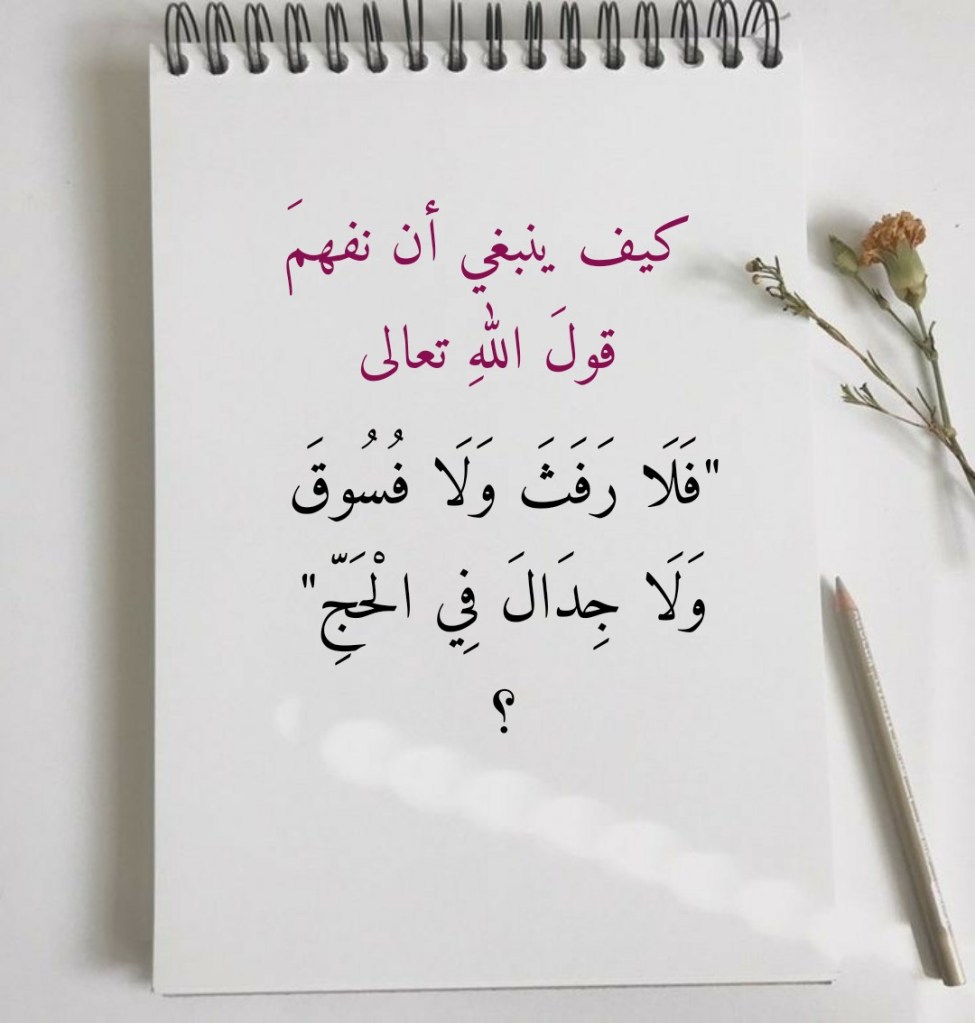 كيف ينبغي أن نفهمَ
قولَ اللهِ تعالى
"فَلَا رَفَثَ وَلَا فُسُوقَ
وَلَا جِدَالَ فِي الْحَجِّ"
؟